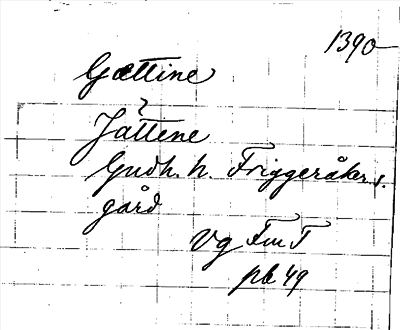 1390
Gættine
?
Jättene
Gudh. h. Friggeråker s.
gård
Vg FmT
pb 49